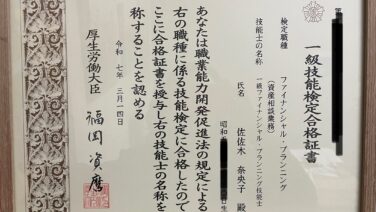 第
一級技能検定合格証書
検定職種
ファイナンシャル・プランニング
(資産相談業務)
技能士の名称
一級ファイナンシャル・プランニング技能士
氏名
佐佐木 奈央子 殿
昭和
生
あなたは職業能力開発促進法の規定による
右の職種に係る技能検定に合格したので
ここに合格証書を授与し右の技能士の名称を
称することを認める
令和 七年 三月一四日
厚生労働大臣
福岡資麿